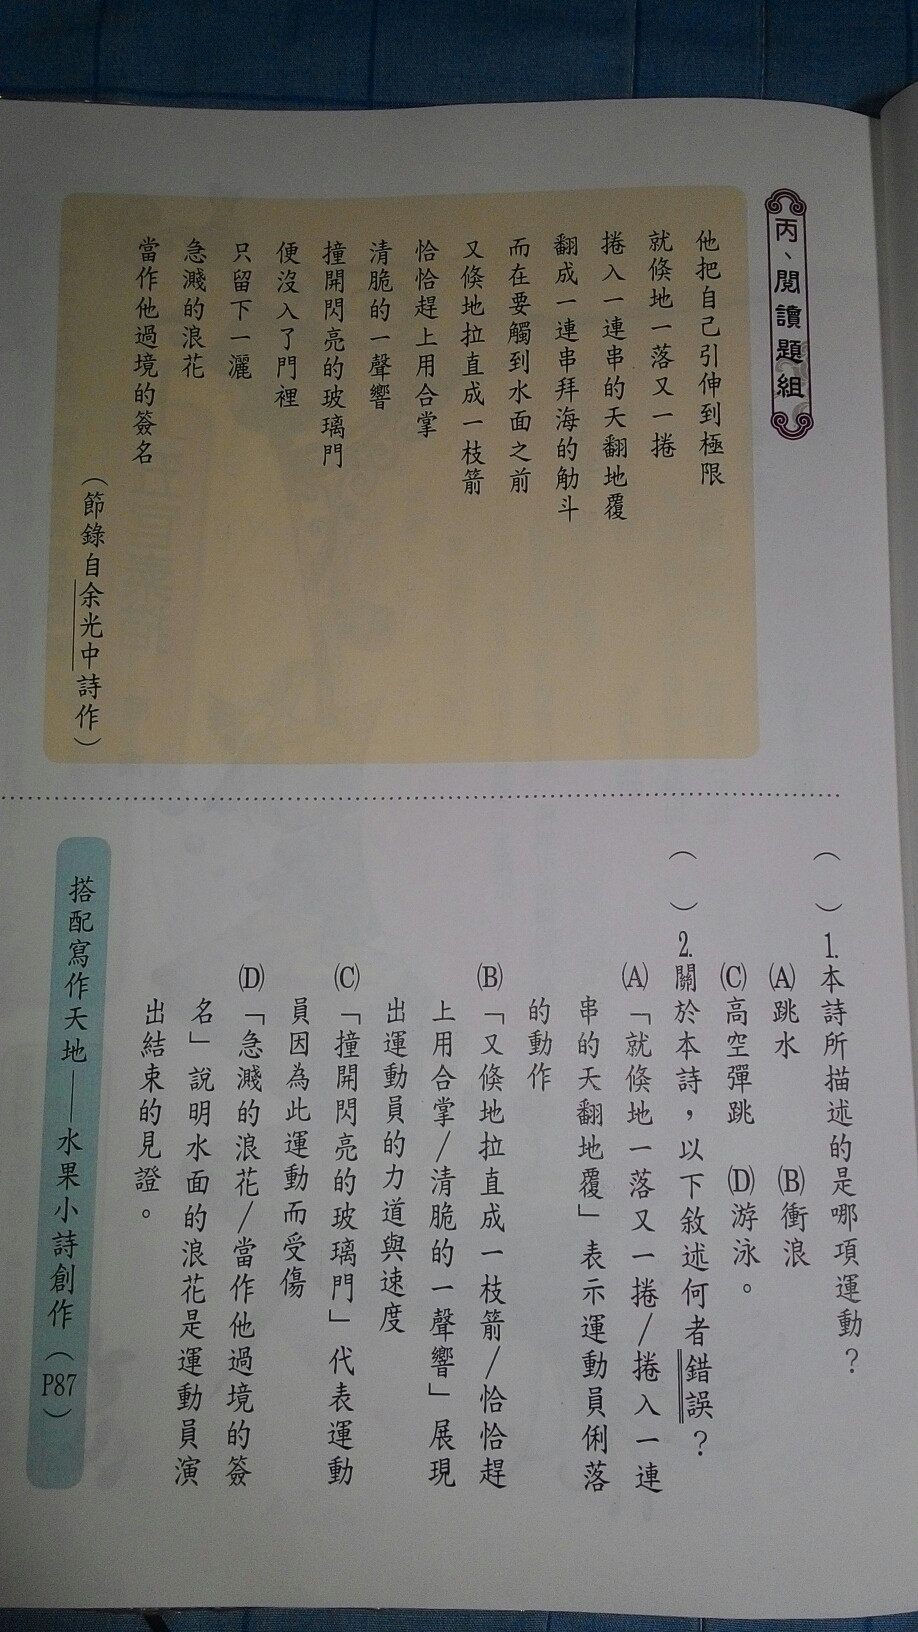 丙、閱讀題組
他把自己引伸到極限
就倏地一落又一捲
捲入一連串的天翻地覆
翻成一連串拜海的觔斗
而在要觸到水面之前
又倏地拉直成一枝箭
恰恰趕上用合掌
清脆的一聲響
撞開閃亮的玻璃門
便沒入了門裡
只留下一灑
急濺的浪花
當作他過境的簽名
(節錄自余光中詩作)
( )1.本詩所描述的是哪項運動?
(A)跳水 (B)衝浪
(C)高空彈跳 (D)游泳。
( )2.關於本詩,以下敘述何者錯誤?
(A)「就倏地一落又一捲/捲入一連
串的天翻地覆」表示運動員俐落
的動作
(B)「又倏地拉直成一枝箭/恰恰趕
上用合掌/清脆的一聲響」展現
出運動員的力道與速度
(C)「撞開閃亮的玻璃門」代表運動
員因為此運動而受傷
(D)「急濺的浪花/當作他過境的簽
名」說明水面的浪花是運動員演
出結束的見證。
搭配寫作天地——水果小詩創作(P87)